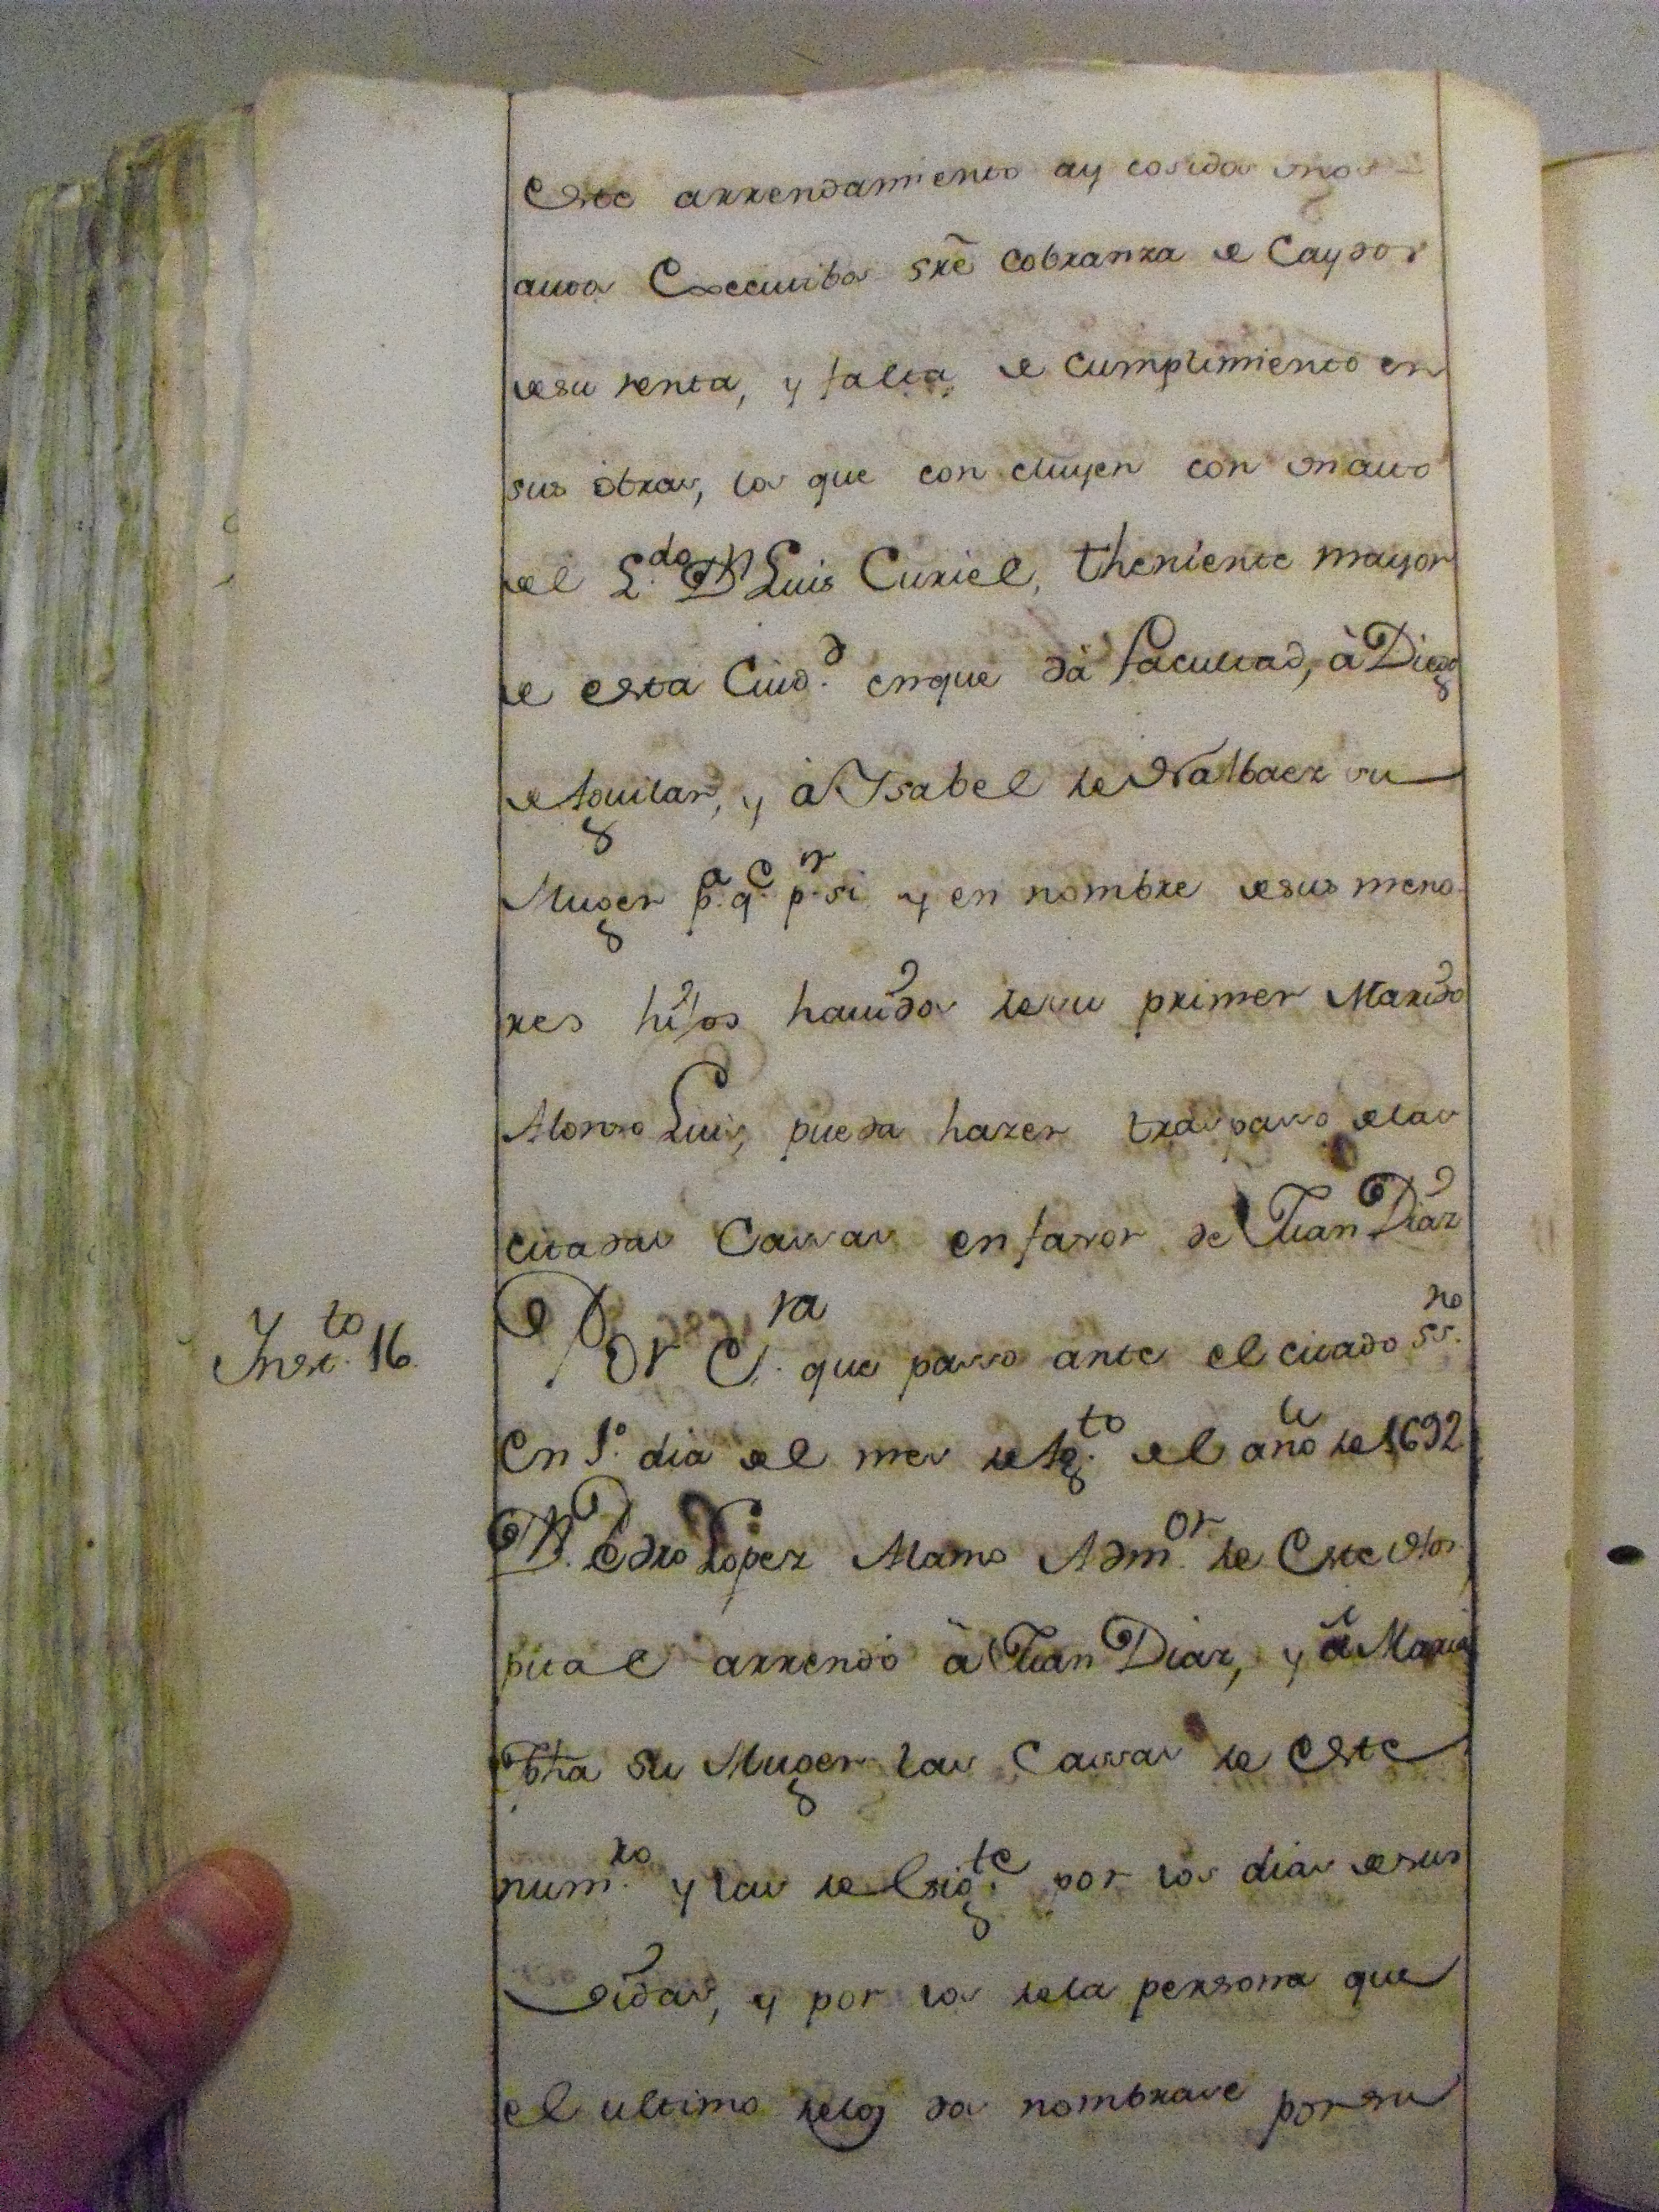 este arrendamiento ay cosidos unos
autos Executibos sre cobranza de Caydos
de su renta, y falta de cumplimiento en
sus obras, los que con cluyen con un auto
del L.do Dn Luis Curiel, theniente mayor
de esta Ciud.d en que dà facultad, à Diego
de Aguilar, y à Ysabel de Narbaez su
Muger p.a q.e p.r si y en nombre de sus meno
res hijos hauidos de su primer Marido
Alonso Luis, pueda hazer traspasso de las
citadas Cassas en favor de Juan Diaz
Ynst.to 16.
Por Es.ra que passo ante el citado ss.no
En 1.º dia del mes de Ag.to del año de 1692
Dn. Pedro Lopez Alamo Adm.or de Este Hos
pital arrendò à Juan Diaz, y à Maria
 su Muger las Cassas de Este
num.ro y las del sig.te por los dias de sus
Vidas, y por los de la persona que
el ultimo de los dos nombrase por su